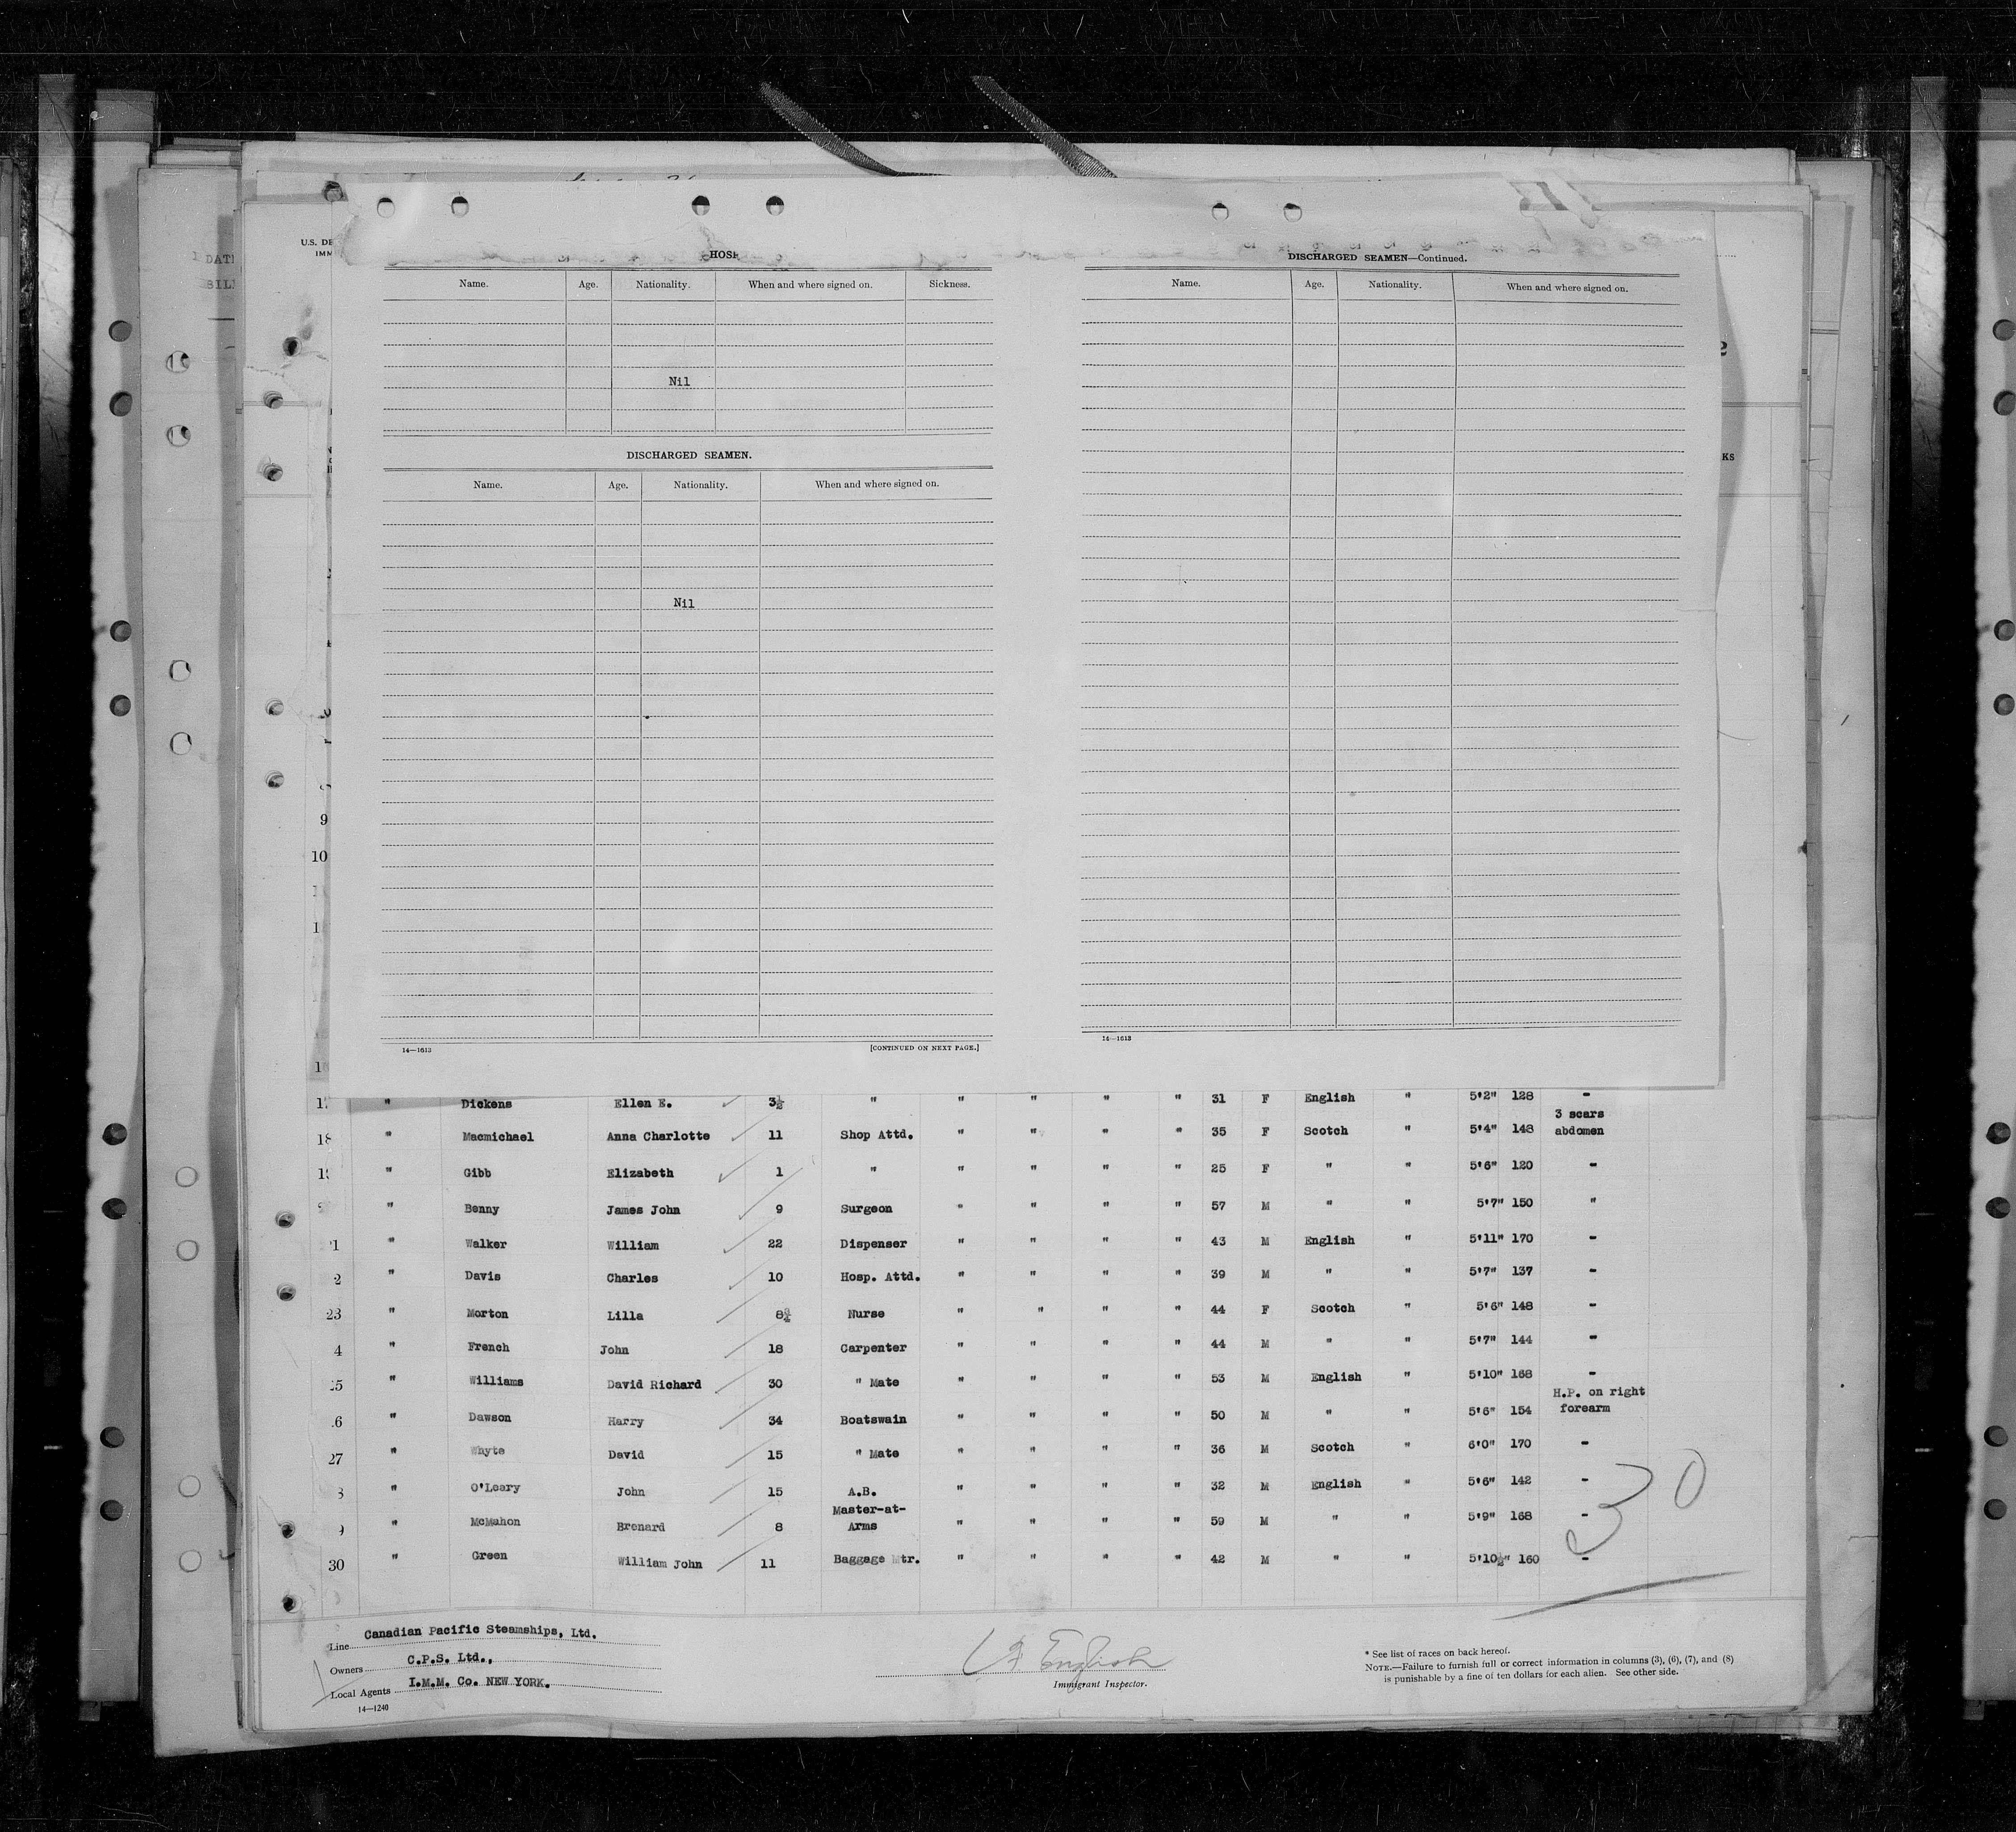 U.S. DE
IMM
DATE
HOSP
Name. Age. Nationality. When and where signed on. Sickness.
Nil
DISCHARGED SEAMEN.
Name. Age. Nationality. When and where signed on.
Nil
14—1613 [CONTINUED ON NEXT PAGE.]
DISCHARGED SEAMEN—Continued.
Name. Age. Nationality. When and where signed on.
14—1613
2
KS
9
10
" Dickens Ellen E. 3½ " " " " " 31 F English " 5'2" 128 -
18 " Macmichael Anna Charlotte 11 Shop Attd. " " " " 35 F Scotch " 5'4" 148 3 scars
abdomen
" Gibb Elizabeth 1 " " " " " 25 F " " 5'6" 120 -
" Benny James John 9 Surgeon " " " " 57 M " " 5'7" 150 "
21 " Walker William 22 Dispenser " " " " 43 M English " 5'11" 170 -
2 " Davis Charles 10 Hosp. Attd. " " " " 39 M " " 5'7" 137 -
23 " Morton Lilla 8¾ Nurse " " " " 44 F Scotch " 5'6" 148 -
4 " French John 18 Carpenter " " " " 44 M " " 5'7" 144 -
25 " Williams David Richard 30 " Mate " " " " 53 M English " 5'10" 168 -
26 " Dawson Harry 34 Boatswain " " " " 50 M " " 5'6" 154 H.P. on right
forearm
27 " Whyte David 15 " Mate " " " " 36 M Scotch " 6'0" 170 -
8 " O'Leary John 15 A.B. " " " " 32 M English " 5'6" 142 -
9 " McMahon Brenard 8 Master-at-
Arms " " " " 59 M " " 5'9" 168 -
30 " Green William John 11 Baggage Mtr. " " " " 42 M " " 5'10½" 160 -
30
Line Canadian Pacific Steamships, Ltd.
Owners C.P.S. Ltd.,
Local Agents I.M.M. Co. NEW YORK.
14—1240
English
Immigrant Inspector.
* See list of races on back hereof.
NOTE.—Failure to furnish full or correct information in columns (3), (6), (7), and (8)
is punishable by a fine of ten dollars for each alien. See other side.